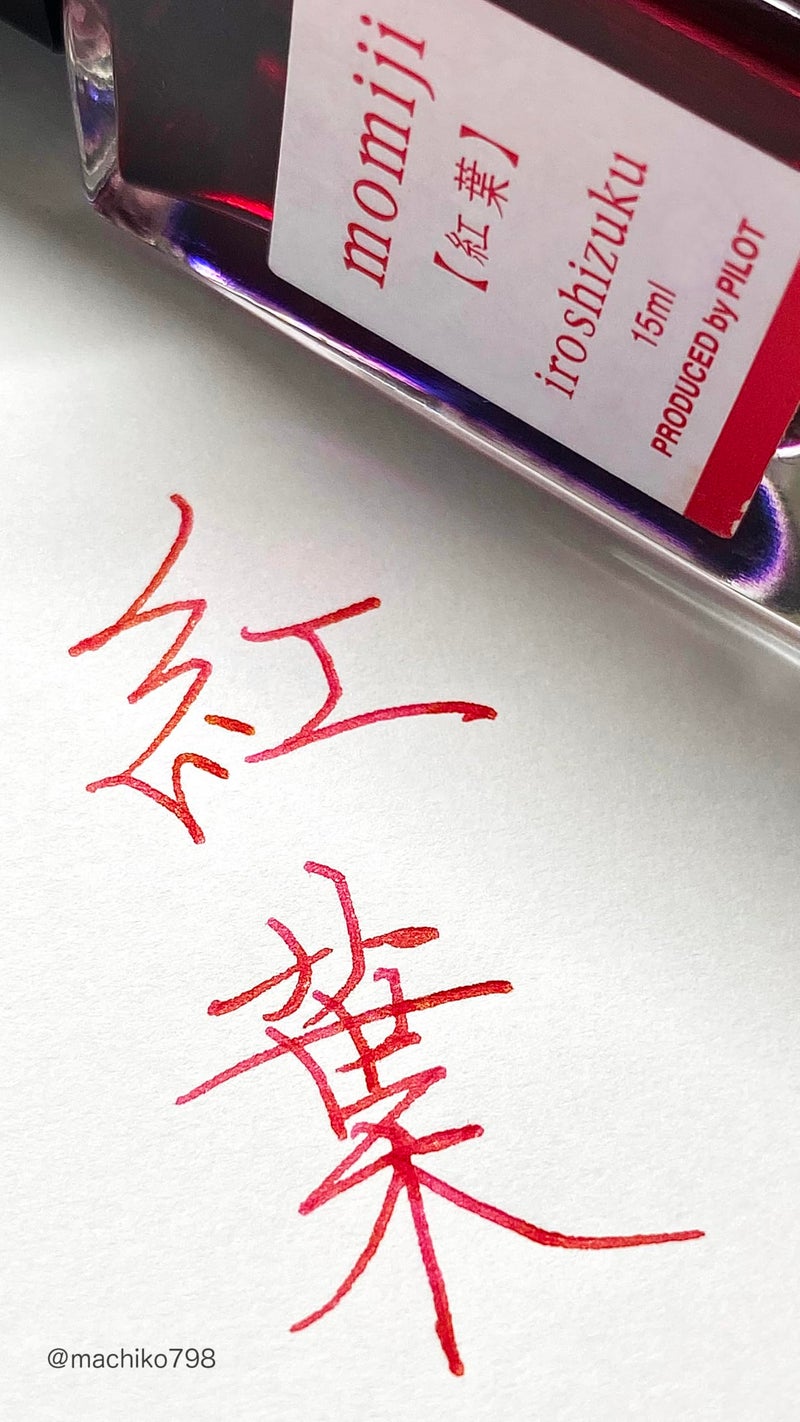 momiji
【紅葉】
iroshizuku
15ml
PRODUCED by PILOT
紅葉
@machiko798